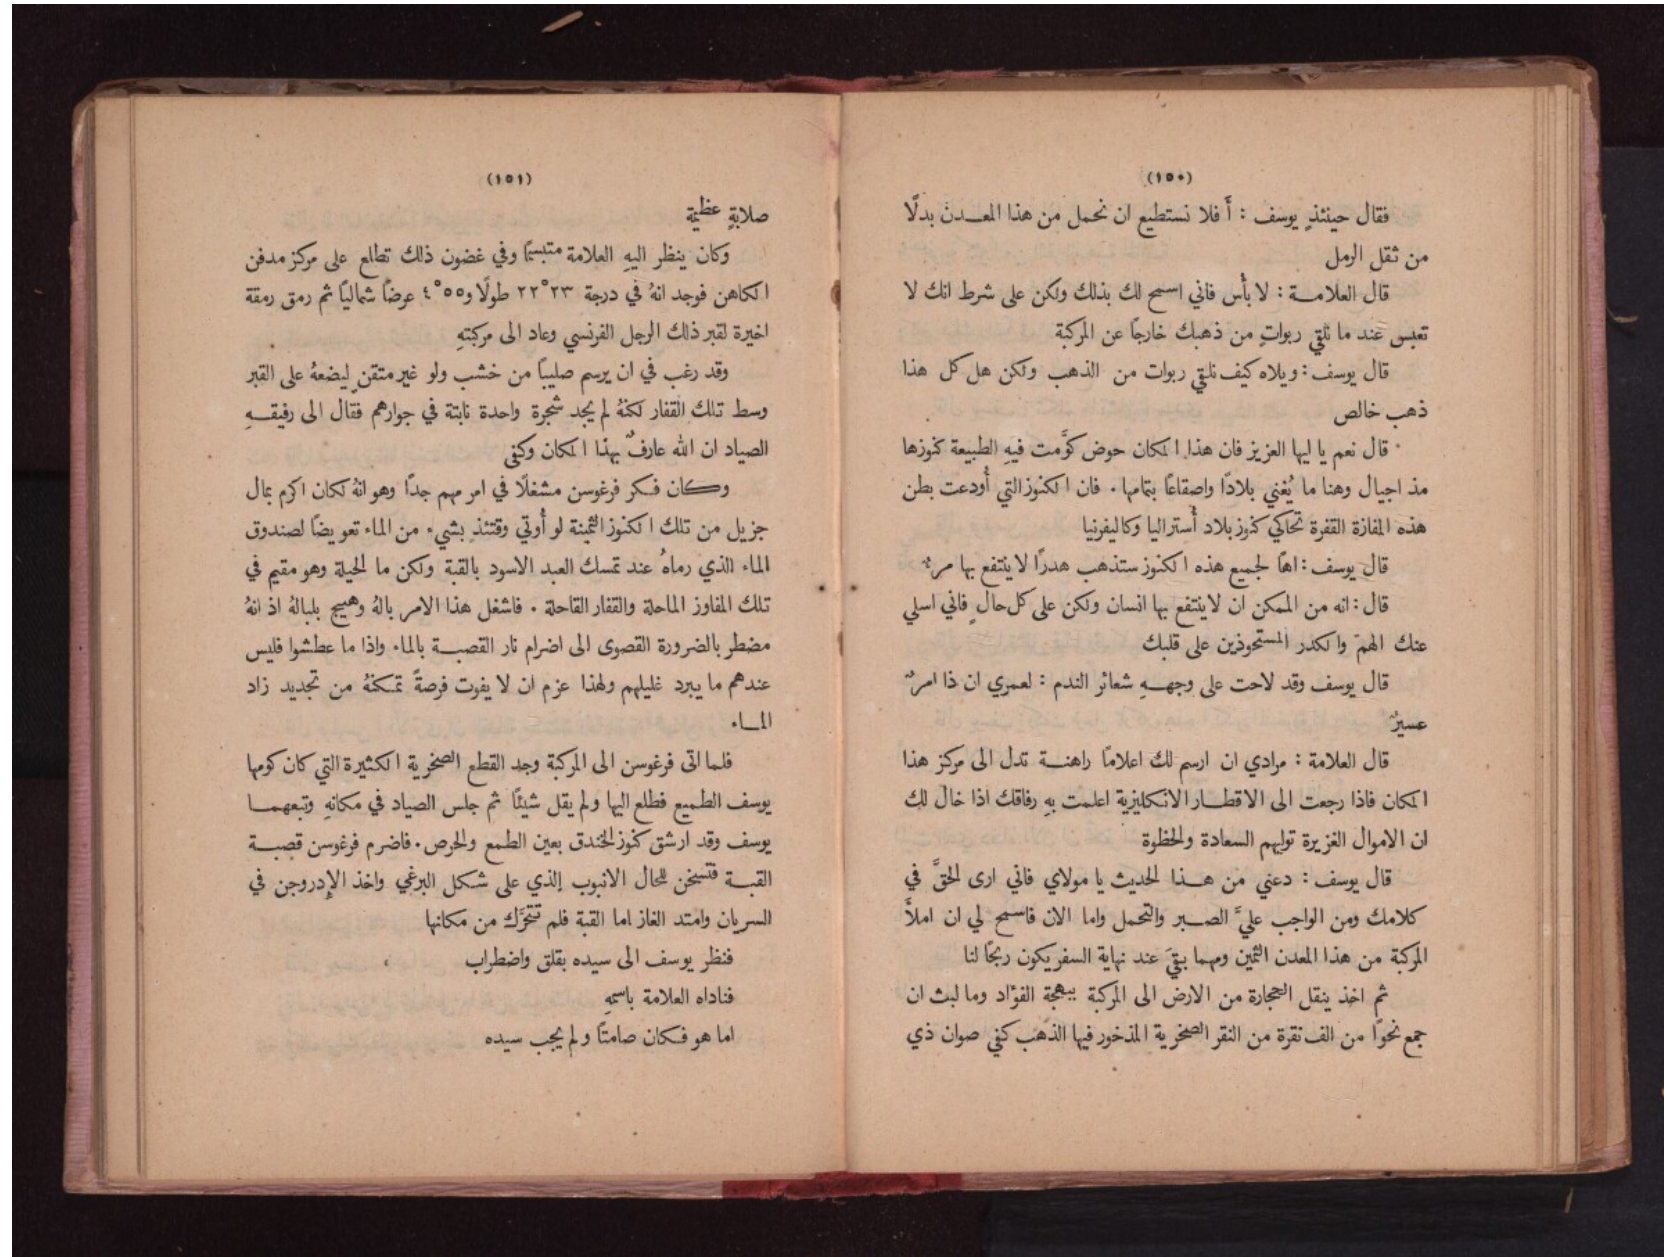 (١٥٠)
فقال حينئذٍ يوسف : أَ فلا نستطيع ان نحمل من هذا المعـدن بدلًا
من ثقل الرمل
قال العلامـة : لا بأس فاني اسمح لك بذلك ولكن على شرط انك لا
تعبس عند ما نلقي ربواتٍ من ذهبك خارجًا عن المركبة
قال يوسف : ويلاه كيف نلقي ربوات من الذهب ولكن هل كل هذا
ذهب خالص
قال نعم يا ايها العزيز فان هذا المكان حوض كوَّمت فيهِ الطبيعة كنوزها
مذ اجيال وهنا ما يُغني بلادًا واصقاعًا بتمامها . فان الكنوز التي أُودعت بطن
هذه المفازة القفرة تحاكي كنوز بلاد أُستراليا وكاليفرنيا
قال يوسف : اهًا لجميع هذه الكنوز ستذهب هدرًا لا ينتفع بها مرءٌ
قال : انه من الممكن ان لا ينتفع بها انسان ولكن على كل حالٍ فاني اسلي
عنك الهمّ والكدر المستحوذين على قلبك
قال يوسف وقد لاحت على وجهـهِ شعائر الندم : لعمري ان ذا امرٌ
عسيرٌ
قال العلامة : مرادي ان ارسم لك اعلامًا راهنـة تدل الى مركز هذا
المكان فاذا رجعت الى الاقطـار الانكليزية اعلمت بهِ رفاقك اذا خال لك
ان الاموال الغزيرة توليهم السعادة والحظوة
قال يوسف : دعني من هـذا الحديث يا مولاي فاني ارى الحقَّ في
كلامك ومن الواجب عليَّ الصـبر والتحمل واما الان فاسمح لي ان املأَ
المركبة من هذا المعدن الثمين ومهما بقيَ عند نهاية السفر يكون ربحًا لنا
ثم اخذ ينقل الحجارة من الارض الى المركبة ببهجة الفؤاد وما لبث ان
جمع نحوًا من الف نقرة من النقر الصخرية المذخور فيها الذهب كفي صوان ذي
(١٥١)
صلابةٍ عظيمة
وكان ينظر اليهِ العلامة متبسمًا وفي غضون ذلك تطلع على مركز مدفن
الكاهن فوجد انهُ في درجة ٢٣ ْ٢٢ طولًا و٥٥ ْ٤ عرضًا شماليًا ثم رمق رمقة
اخيرة لقبر ذلك الرجل الفرنسي وعاد الى مركبتهِ
وقد رغب في ان يرسم صليبًا من خشب ولو غير متقنٍ ليضعهُ على القبر
وسط تلك القفار لكنهُ لم يجد شجرة واحدة نابتة في جوارهم فقال الى رفيقـهِ
الصياد ان الله عارفٌ بهذا المكان وكفى
وكان فكر فرغوسن مشغلًا في امر مهم جدًا وهو انهُ لكان اكرم بمال
جزيل من تلك الكنوز الثمينة لو أُوتي وقتئذٍ بشيء من الماء تعويضًا لصندوق
الماء الذي رماهُ عند تمسك العبد الاسود بالقبة ولكن ما الحيلة وهو مقيم في
تلك المفاوز الماحلة والقفار القاحلة . فاشغل هذا الامر بالهُ وهيج بلبالهُ اذ انهُ
مضطر بالضرورة القصوى الى اضرام نار القصبـة بالماء واذا ما عطشوا فليس
عندهم ما يبرد غليلهم ولهذا عزم ان لا يفوت فرصةً تمكنهُ من تجديد زاد
المـاء
فلما اتى فرغوسن الى المركبة وجد القطع الصخرية الكثيرة التي كان كومها
يوسف الطميع فطلع اليها ولم يقل شيئًا ثم جلس الصياد في مكانهِ وتبعهمـا
يوسف وقد ارشق كنوز الخندق بعين الطمع والحرص . فاضرم فرغوسن قصبـة
القبـة فتسخن للحال الانبوب الذي على شكل البرغي واخذ الإِدروجن في
السريان وامتد الغاز اما القبة فلم تتحرَّك من مكانها
فنظر يوسف الى سيده بقلق واضطراب
فناداه العلامة باسمهِ
اما هو فكان صامتًا ولم يجب سيده